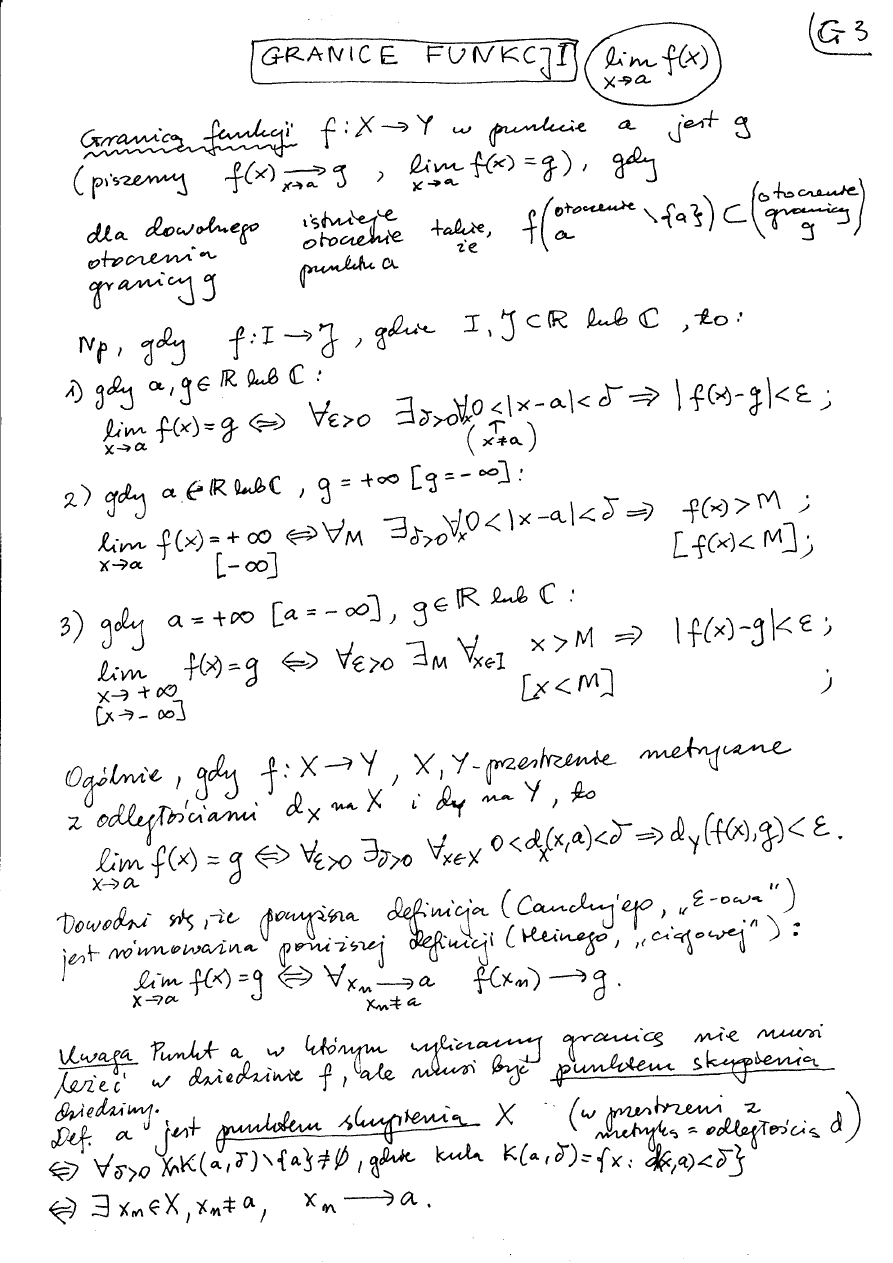 G3
GRANICE FUNKCJI lim f(x) x→a
Granicą funkcji f: X → Y w punkcie a jest g
(piszemy f(x) → g x→a , lim f(x) = g x→a ), gdy
dla dowolnego otoczenia granicy g istnieje otoczenie punktu a takie, że f(otoczenie a \ {a}) ⊂ (otoczenie granicy g)
Np, gdy f: I → J, gdzie I, J ⊂ ℝ lub ℂ, to:
1) gdy a, g ∈ ℝ lub ℂ:
lim f(x) = g ⇔ ∀ε>0 ∃δ>0 ∀x 0<|x-a|<δ ⇒ |f(x)-g|<ε ;
x→a (x≠a) ↑
2) gdy a ∈ ℝ lub ℂ, g = +∞ [g = -∞]:
lim f(x) = +∞ ⇔ ∀M ∃δ>0 ∀x 0<|x-a|<δ ⇒ f(x) > M ;
x→a [-∞] [f(x) < M];
3) gdy a = +∞ [a = -∞], g ∈ ℝ lub ℂ:
lim f(x) = g ⇔ ∀ε>0 ∃M ∀x∈I x > M ⇒ |f(x)-g|<ε ;
x→+∞ [x < M] ;
[x→-∞]
Ogólnie, gdy f: X → Y, X, Y - przestrzenie metryczne
z odległościami dX na X i dY na Y, to
lim f(x) = g ⇔ ∀ε>0 ∃δ>0 ∀x∈X 0<dX(x,a)<δ ⇒ dY(f(x),g)<ε.
x→a
Dowodzi się, że powyższa definicja (Cauchy'ego, „ε-owa")
jest równoważna poniższej definicji (Heinego, „ciągowej"):
lim f(x) = g ⇔ ∀xn → a f(xn) → g.
x→a xn≠a
Uwaga Punkt a w którym wyliczamy granicę nie musi
leżeć w dziedzinie f, ale musi być punktem skupienia
dziedziny.
Def. a jest punktem skupienia X (w przestrzeni z metryką = odległością d)
⇔ ∀δ>0 X∩K(a,δ)\{a}≠∅, gdzie kula K(a,δ)={x: d(x,a)<δ}
⇔ ∃ xn∈X, xn≠a, xn → a.